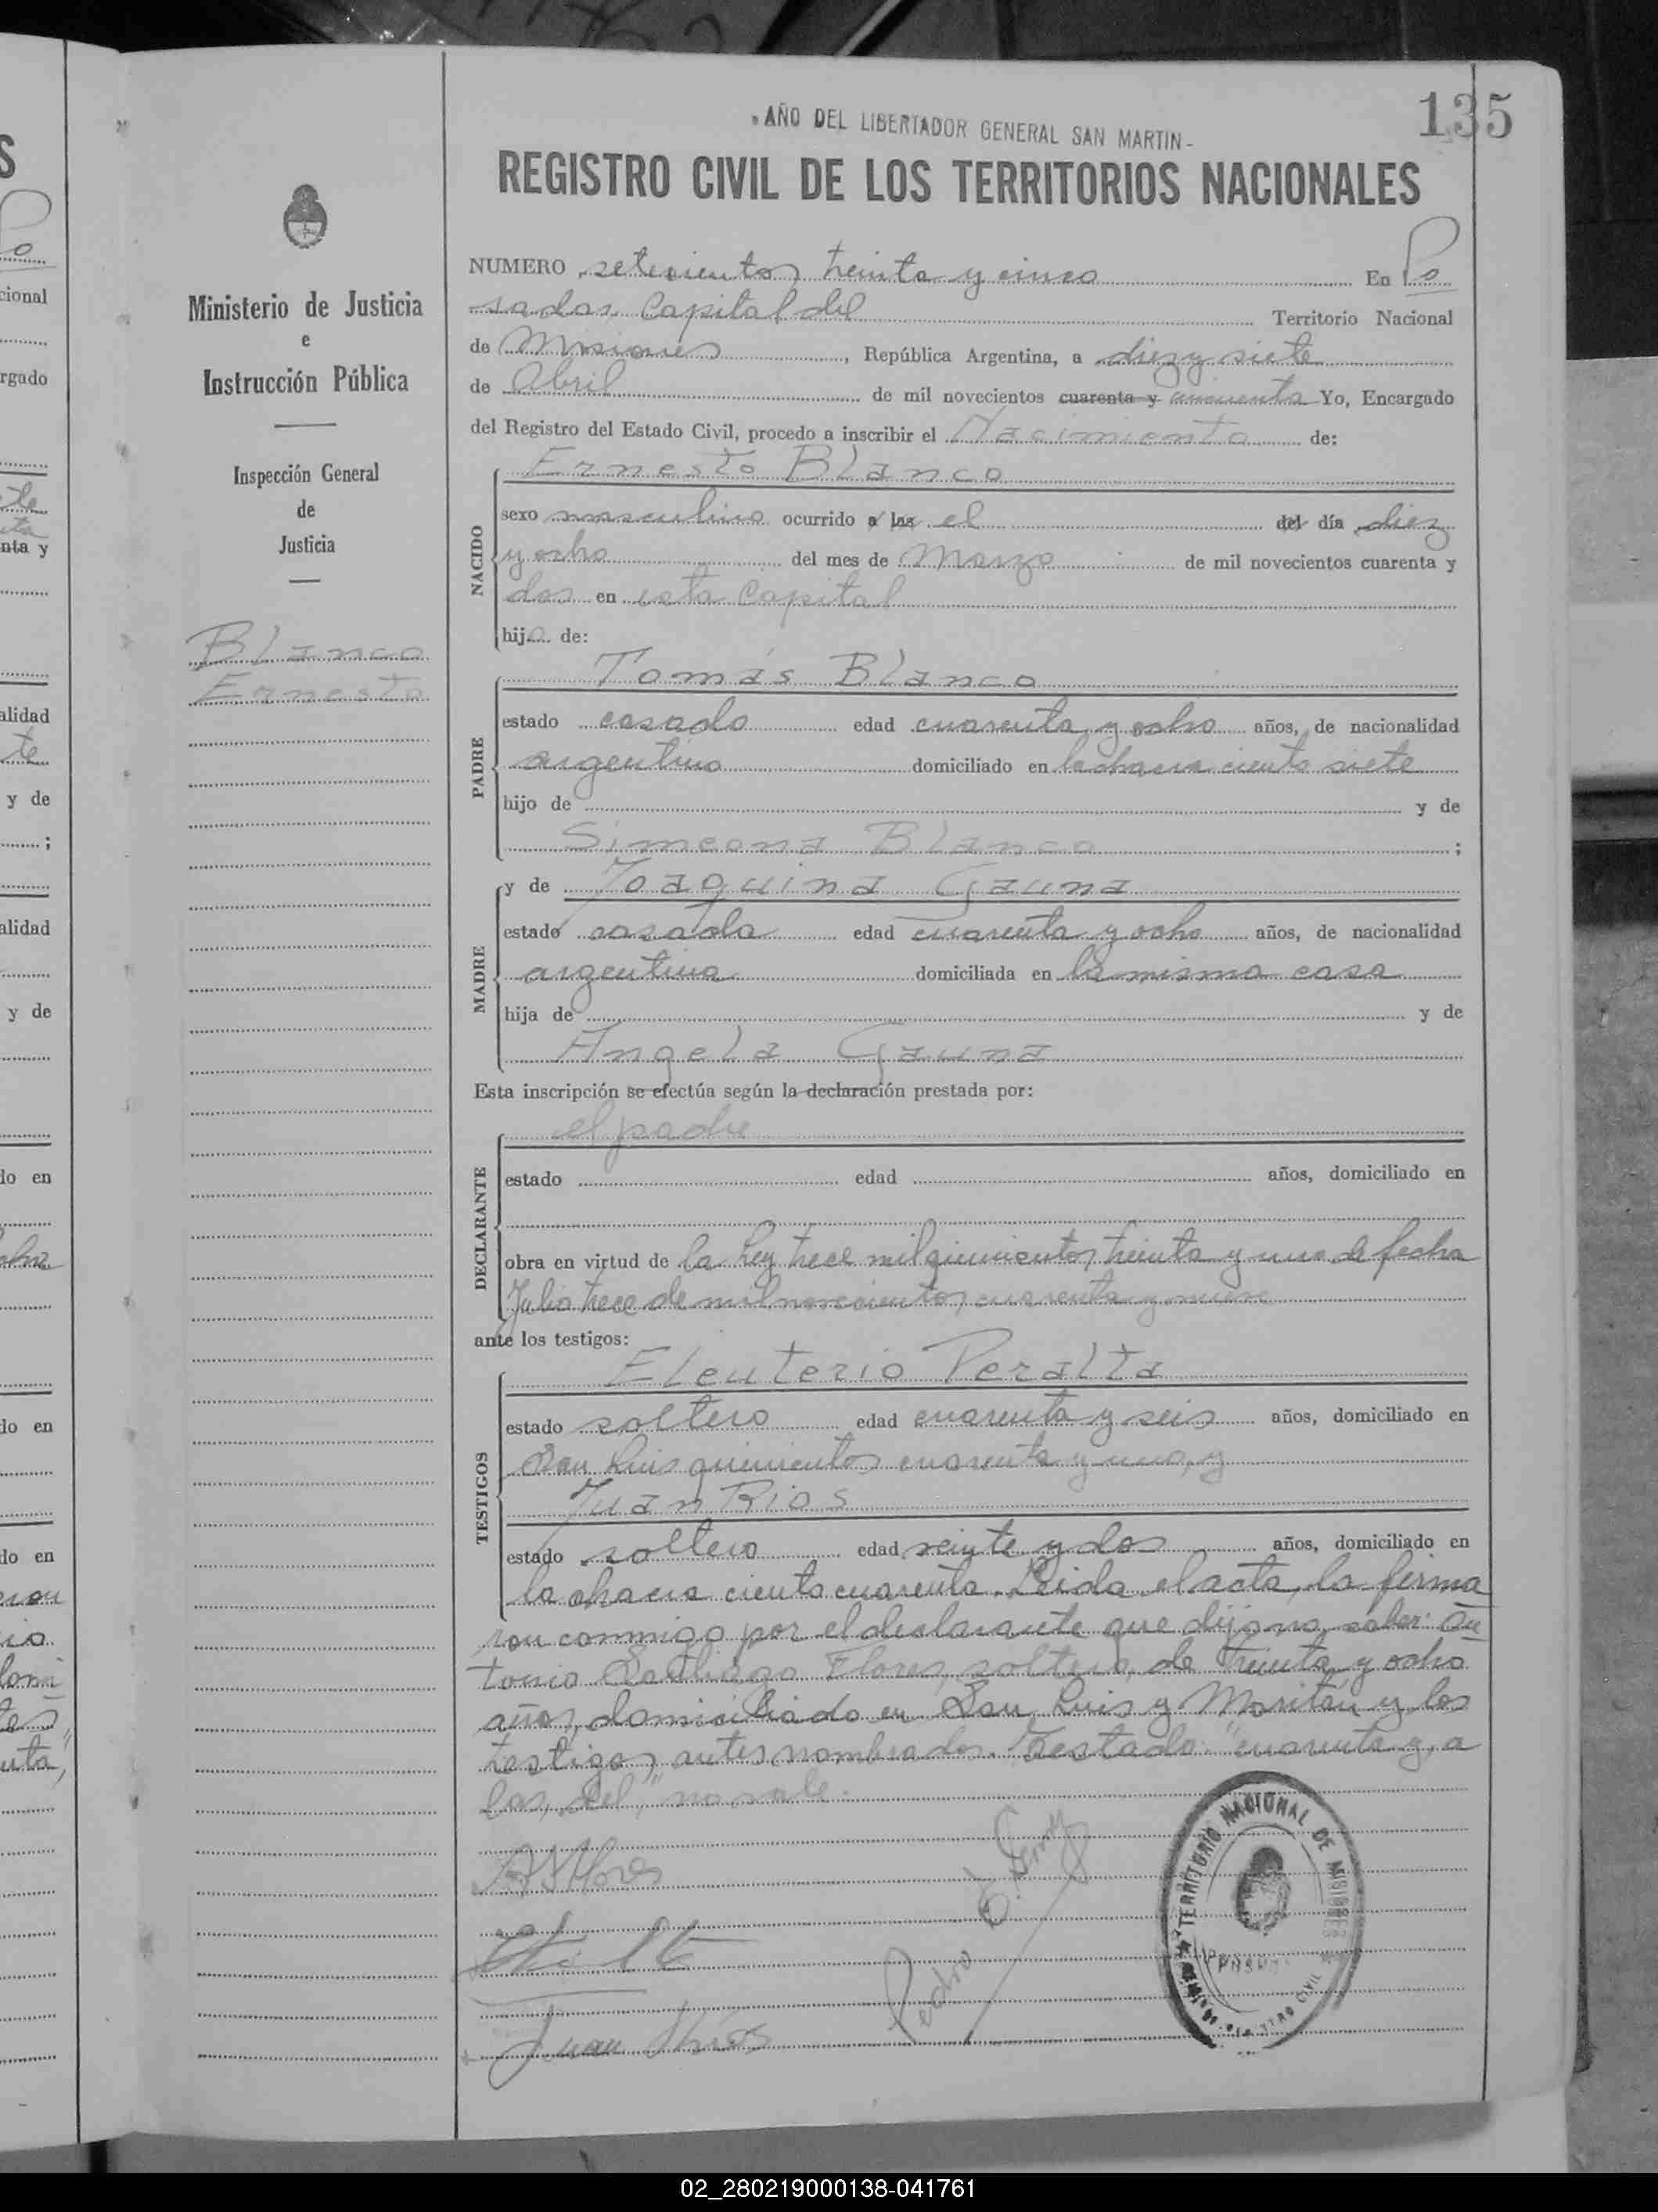 135
AÑO DEL LIBERTADOR GENERAL SAN MARTIN
REGISTRO CIVIL DE LOS TERRITORIOS NACIONALES
Ministerio de Justicia
e
Instrucción Pública
Inspección General
de
Justicia
Blanco
Ernesto
NUMERO setecientos treinta y cinco En Po
sadas Capital del Territorio Nacional
de Misiones, República Argentina, a diez y siete
de Abril de mil novecientos cuarenta y cincuenta Yo, Encargado
del Registro del Estado Civil, procedo a inscribir el Nacimiento de:
NACIDO
Ernesto Blanco
sexo masculino ocurrido a las el del día diez
y ocho del mes de Marzo de mil novecientos cuarenta y
dos en esta Capital
hijo de:
PADRE
Tomás Blanco
estado casado edad cuarenta y ocho años, de nacionalidad
argentino domiciliado en la chacra ciento siete
hijo de y de
Simeona Blanco ;
MADRE
y de Joaquina Gauna
estado casada edad cuarenta y ocho años, de nacionalidad
argentina domiciliada en la misma casa
hija de y de
Angela Gauna
Esta inscripción se efectúa según la declaración prestada por:
DECLARANTE
el padre
estado edad años, domiciliado en
obra en virtud de la ley trece mil quinientos treinta y uno de fecha
Julio trece de mil novecientos cuarenta y nueve
ante los testigos:
TESTIGOS
Eleuterio Peralta
estado soltero edad cuarenta y seis años, domiciliado en
San Luis quinientos cuarenta y uno, y
Juan Rios
estado soltero edad veinte y dos años, domiciliado en
la chacra ciento cuarenta. Leida el acta, la firma
ron conmigo por el declarante que dijo no saber: An
tonio Santiago Flores, soltero, de treinta y ocho
años, domiciliado en San Luis y Maritán y los
testigos antes nombrados. Testado: "cuarenta y, a
las, del," no vale.
ASFlores
Pedro
Juan Rios
TERRITORIO NACIONAL DE MISIONES
REGISTRO CIVIL
02_280219000138-041761